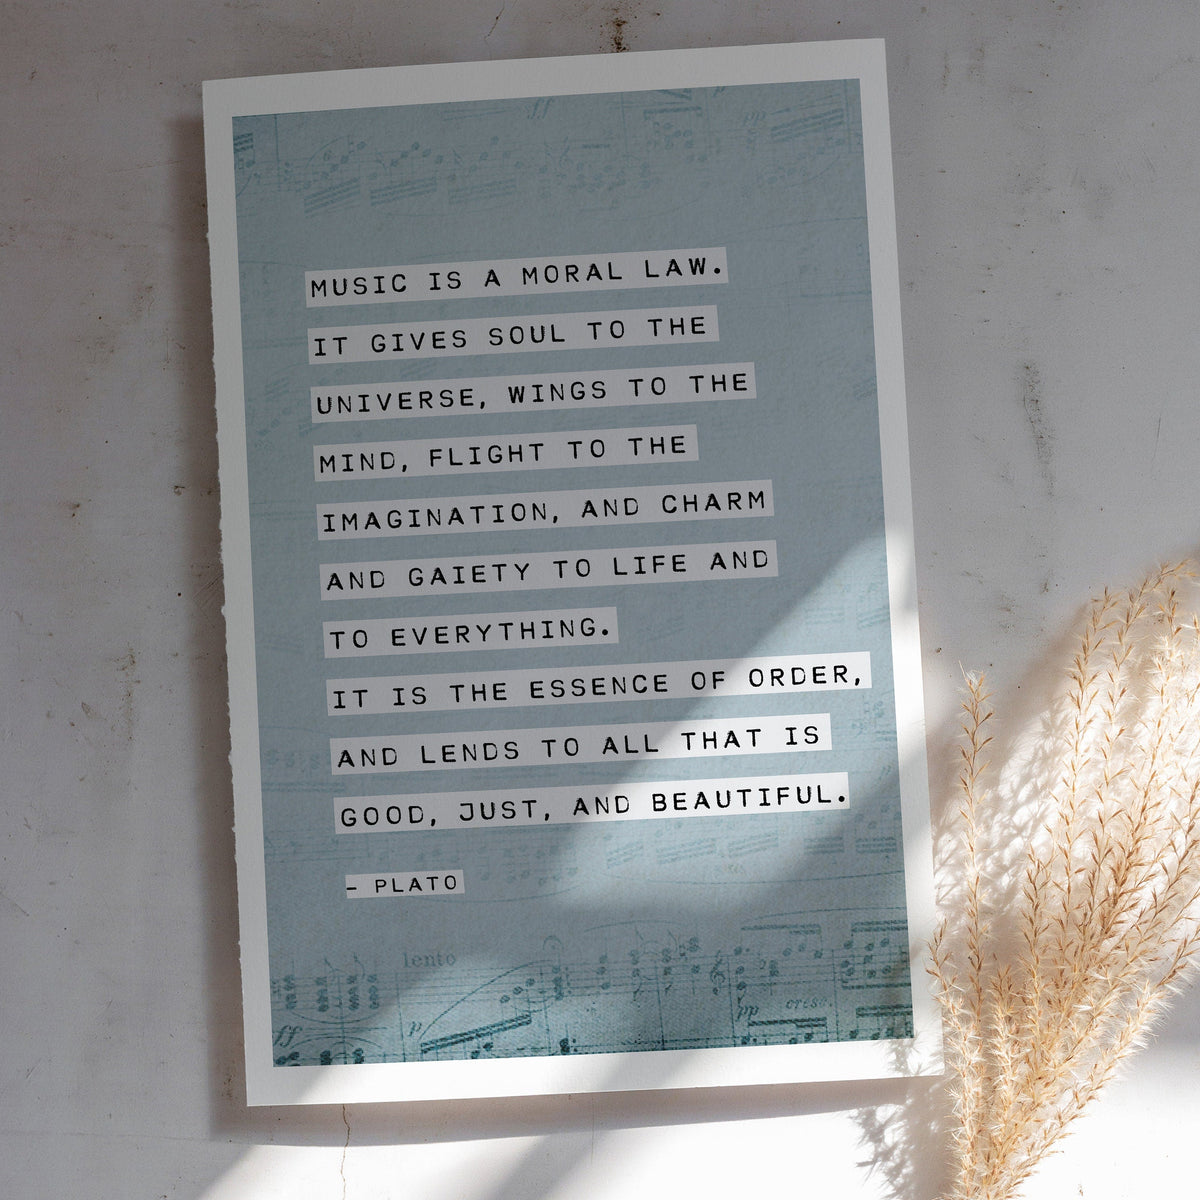 MUSIC IS A MORAL LAW.
IT GIVES SOUL TO THE
UNIVERSE, WINGS TO THE
MIND, FLIGHT TO THE
IMAGINATION, AND CHARM
AND GAIETY TO LIFE AND
TO EVERYTHING.
IT IS THE ESSENCE OF ORDER,
AND LENDS TO ALL THAT IS
GOOD, JUST, AND BEAUTIFUL.
- PLATO
lento
pp cresc.
ff p